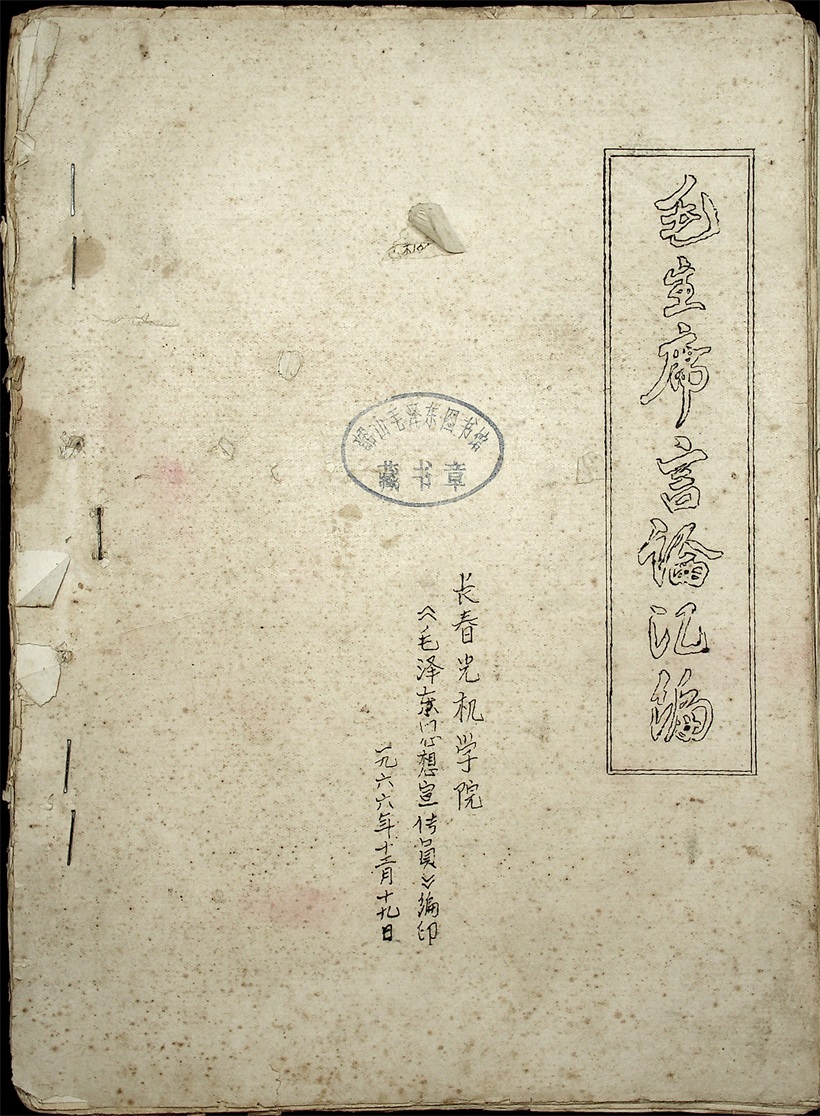 毛主席言論汇编
韶山毛泽东图书馆
藏书章
长春光机学院
《毛泽东思想宣传员》编印
一九六六年十二月十九日